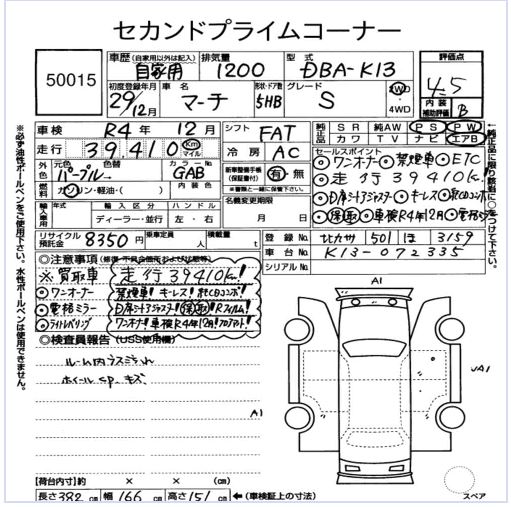 セカンドプライムコーナー
50015
車歴 (自家用以外は記入) 排気量 型式 評価点
自家用 1200 DBA-K13 4.5
初度登録年月 車名 形状・ドア数 グレード 2WD
29年12月 マーチ 5HB S 4WD
内装補助評価 B
車検 R4年 12月 シフト FAT
純正品 SR 純AW PS PW
カワ TV ナビ エアB
走行 39410 Km マイル 冷房 AC
セールスポイント
ワンオーナー 禁煙車 ETC
外色 元色 パープル 色替 カラーNo GAB
新車整備手帳(保証書付) 有・無
※書類と一緒に保管して下さい。
走行39410K!
燃料 ガソリン・軽油・( )
名義変更期限 月 日
輸入車用 年式 輸入区分 ハンドル
ディーラー・並行 左・右
車検R4年12月
リサイクル預託金 8350円 乗車定員 人 積載量 t
登録No 1501 ほ 3159
車台No K13-072335
シリアルNo
◎注意事項
※買取車 走行39410K!
ワンオーナー 禁煙車! キーレス!
電格ミラー
ワンオーナ! 車検R4年12月!
◎検査員報告 (USS使用欄)
ルーム内
ホイールcap キズ
A1
A1
A1
【荷台内寸】 × × (cm)
長さ382cm 幅166cm 高さ151cm ←(車検証上の寸法)
スペア
※必ず油性ボールペンをご使用下さい。水性ボールペンは使用できません。